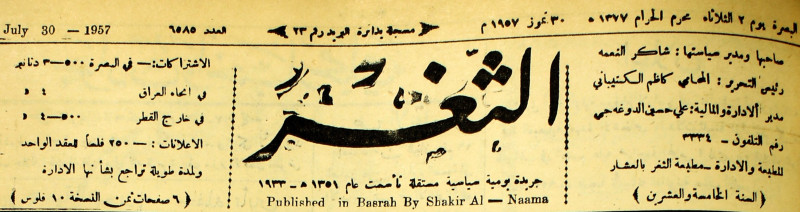 البصرة يوم ٢ الثلاثاء محرم الحرام ١٣٧٧ ه ٣٠ تموز ١٩٥٧ م مسجلة بدائرة البريد رقم ٢٣ العدد ٦٥٨٥ July 30 — 1957
صاحبها ومدير سياستها: شاكر النعمه
رئيس التحرير: المحامي كاظم الكشتيباني
مدير الادارة والمالية: علي حسين الدوغه جي
رقم التلفون – ٣٣٣٤
المطبعة والادارة – مطبعة الثغر بالعشار
(السنة الخامسة والعشرين)
الثغر
جريدة يومية سياسية مستقلة تأسست عام ١٣٥١ ه – ١٩٣٣
Published in Basrah By Shakir Al — Naama
الاشتراكات:— في البصرة ٥٠٠—٣ دنانير
في انحاء العراق ٤ »
في خارج القطر ٥٠٠—٤ »
الاعلانات :— ٢٥٠ فلساً للعقد الواحد
ولمدة طويلة تراجع بشأنها الادارة
(٦ صفحات ثمن النسخة ١٠ فلوس)